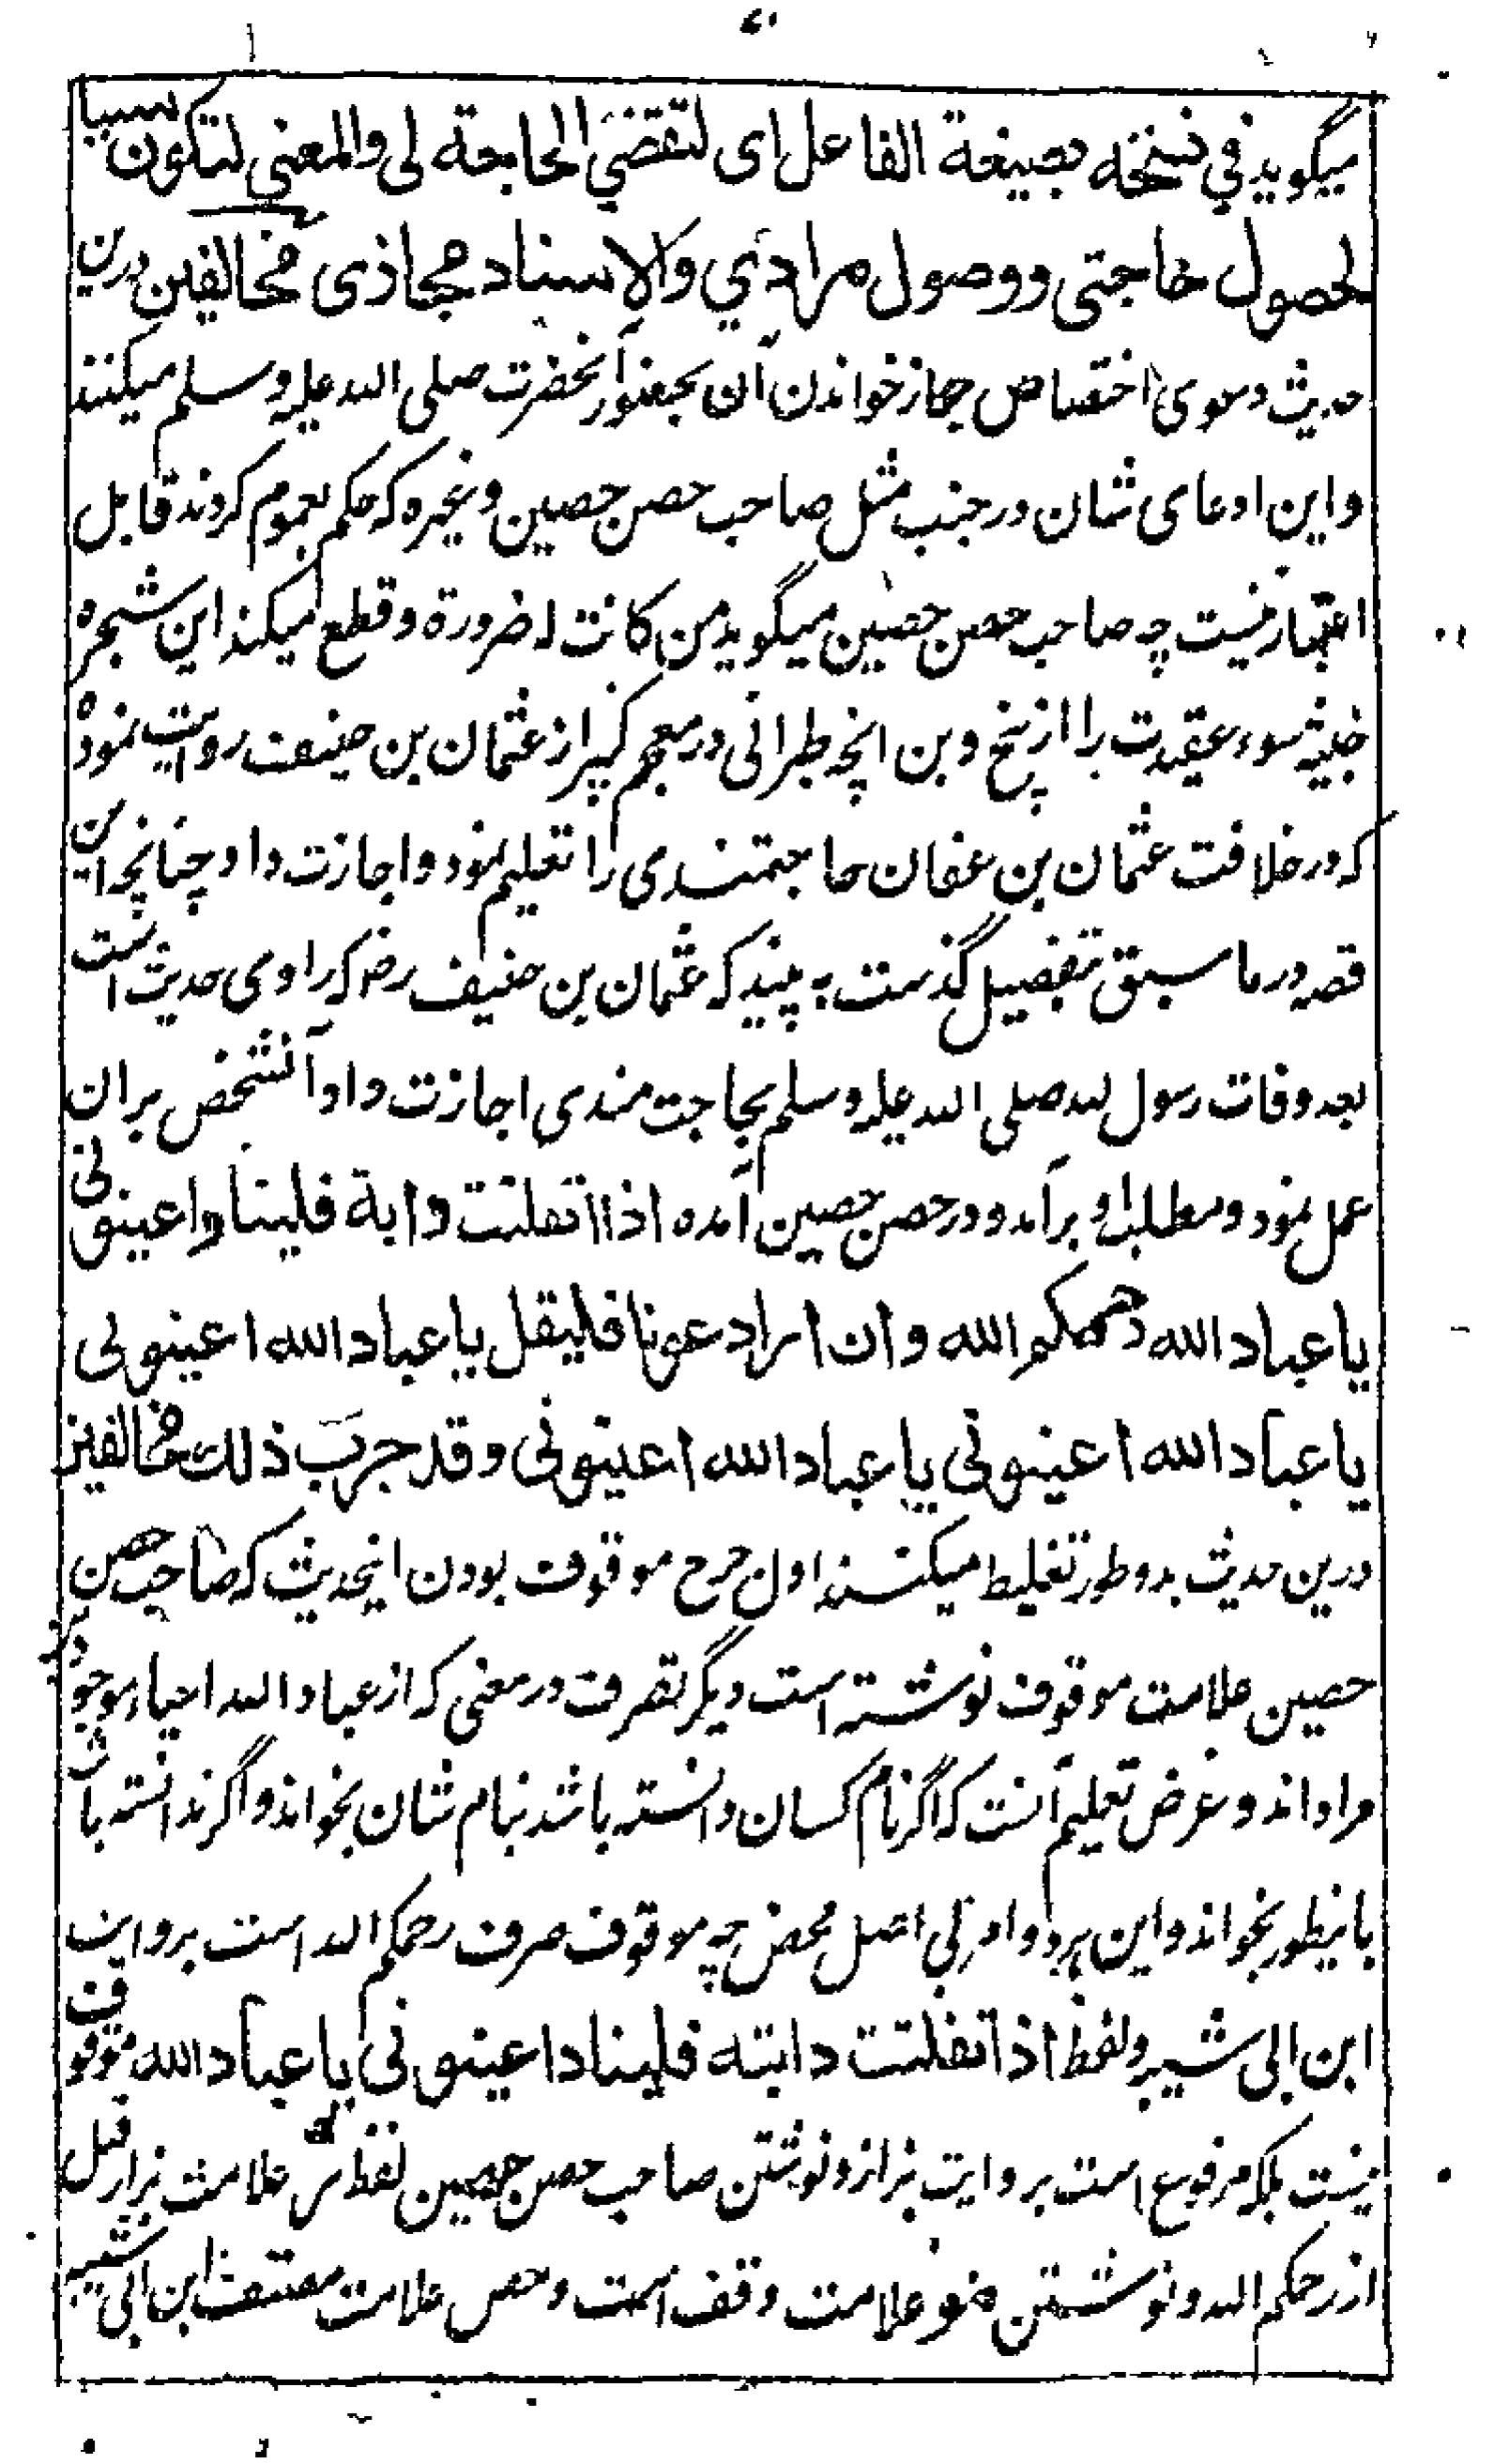 میگوید فی نسخة بصیغة الفاعل ای لتقضی الحاجة لی والمعنی لتکون سببا
لحصول حاجتی ووصول مرادی والاسناد مجازی مخالفین درین
حدیث دعوی اختصاص جواز خواندن آن بحضور آنحضرت صلی الله علیه وسلم میکنند
و این ادعای شان در جنب مثل صاحب حصن حصین وغیره که حکم بعموم کردند قابل
اعتبار نیست چه صاحب حصن حصین میگوید من کانت له ضرورة و قطع میکند این شجره
خبیثه سوء عقیدت را از بیخ و بن انچه طبرانی در معجم کبیر از عثمان بن حنیف روایت نموده
که در خلافت عثمان بن عفان حاجتمندی را تعلیم نمود و اجازت داد چنانچه این
قصه در ما سبق بتفصیل گذشت به بینید که عثمان بن حنیف رضـ که راوی حدیث است
بعد وفات رسول الله صلی الله علیه وسلم بحاجت مندی اجازت داد و آنشخص بران
عمل نمود و مطلب او برآمد و در حصن حصین آمده اذا انفلتت دابة فلیناد اعینونی
یا عباد الله رحمکم الله وان اراد عونا فلیقل یا عباد الله اعینونی
یا عباد الله اعینونی یا عباد الله اعینونی وقد جرب ذلك مخالفین
درین حدیث بدو طور تغلیط میکنند اول جرح موقوف بودن اینحدیث که صاحب حصن
حصین علامت موقوف نوشته است دیگر تصرف در معنی که از عباد الله احیاء موجودین
مراد اند و غرض تعلیم آنست که اگر نام کسان دانسته باشد بنام شان بخواند و اگر ندانسته باشد
باینطور بخواند و این هر دو امر بی اصل محض چه موقوف صرف رحمکم الله است بروایت
ابن ابی شیبه ولفظ اذا انفلتت دابته فلیناد اعینونی یا عباد الله موقوف
نیست بلکه مرفوع است بروایت بزاز و نوشتن صاحب حصن حصین لفظ ر که علامت بزار قبل
از رحمکم الله و نوشتن مو علامت وقف است و مص علامت مصنف ابن ابی شیبه